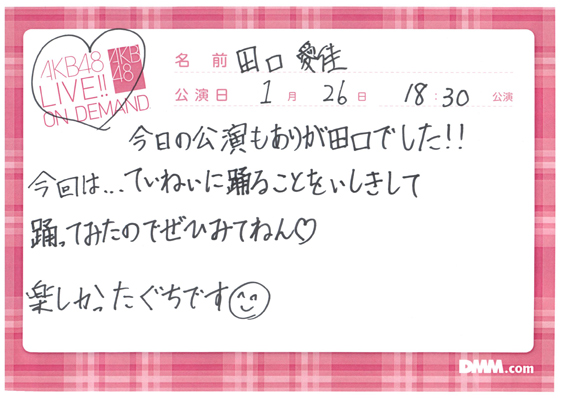 AKB48
LIVE!!
ON DEMAND
AKB
48
名 前 田口 愛佳
公演日 1月 26日 18:30 公演
今日の公演もありが田口でした!!
今回は...てぃねぃに踊ることをぃしきして
踊ってみたのでぜひみてねん♡
楽しかったぐちです
DMM.com